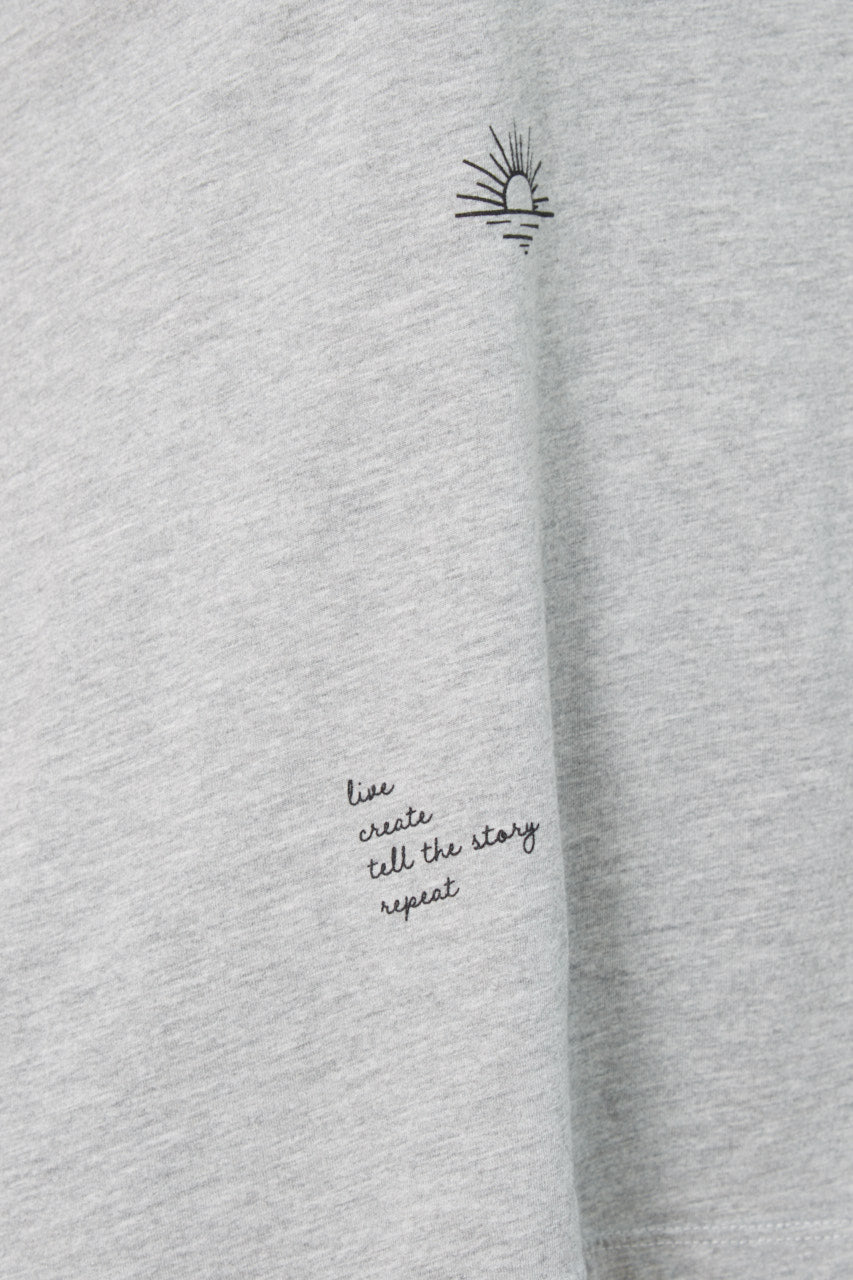 live
create
tell the story
repeat